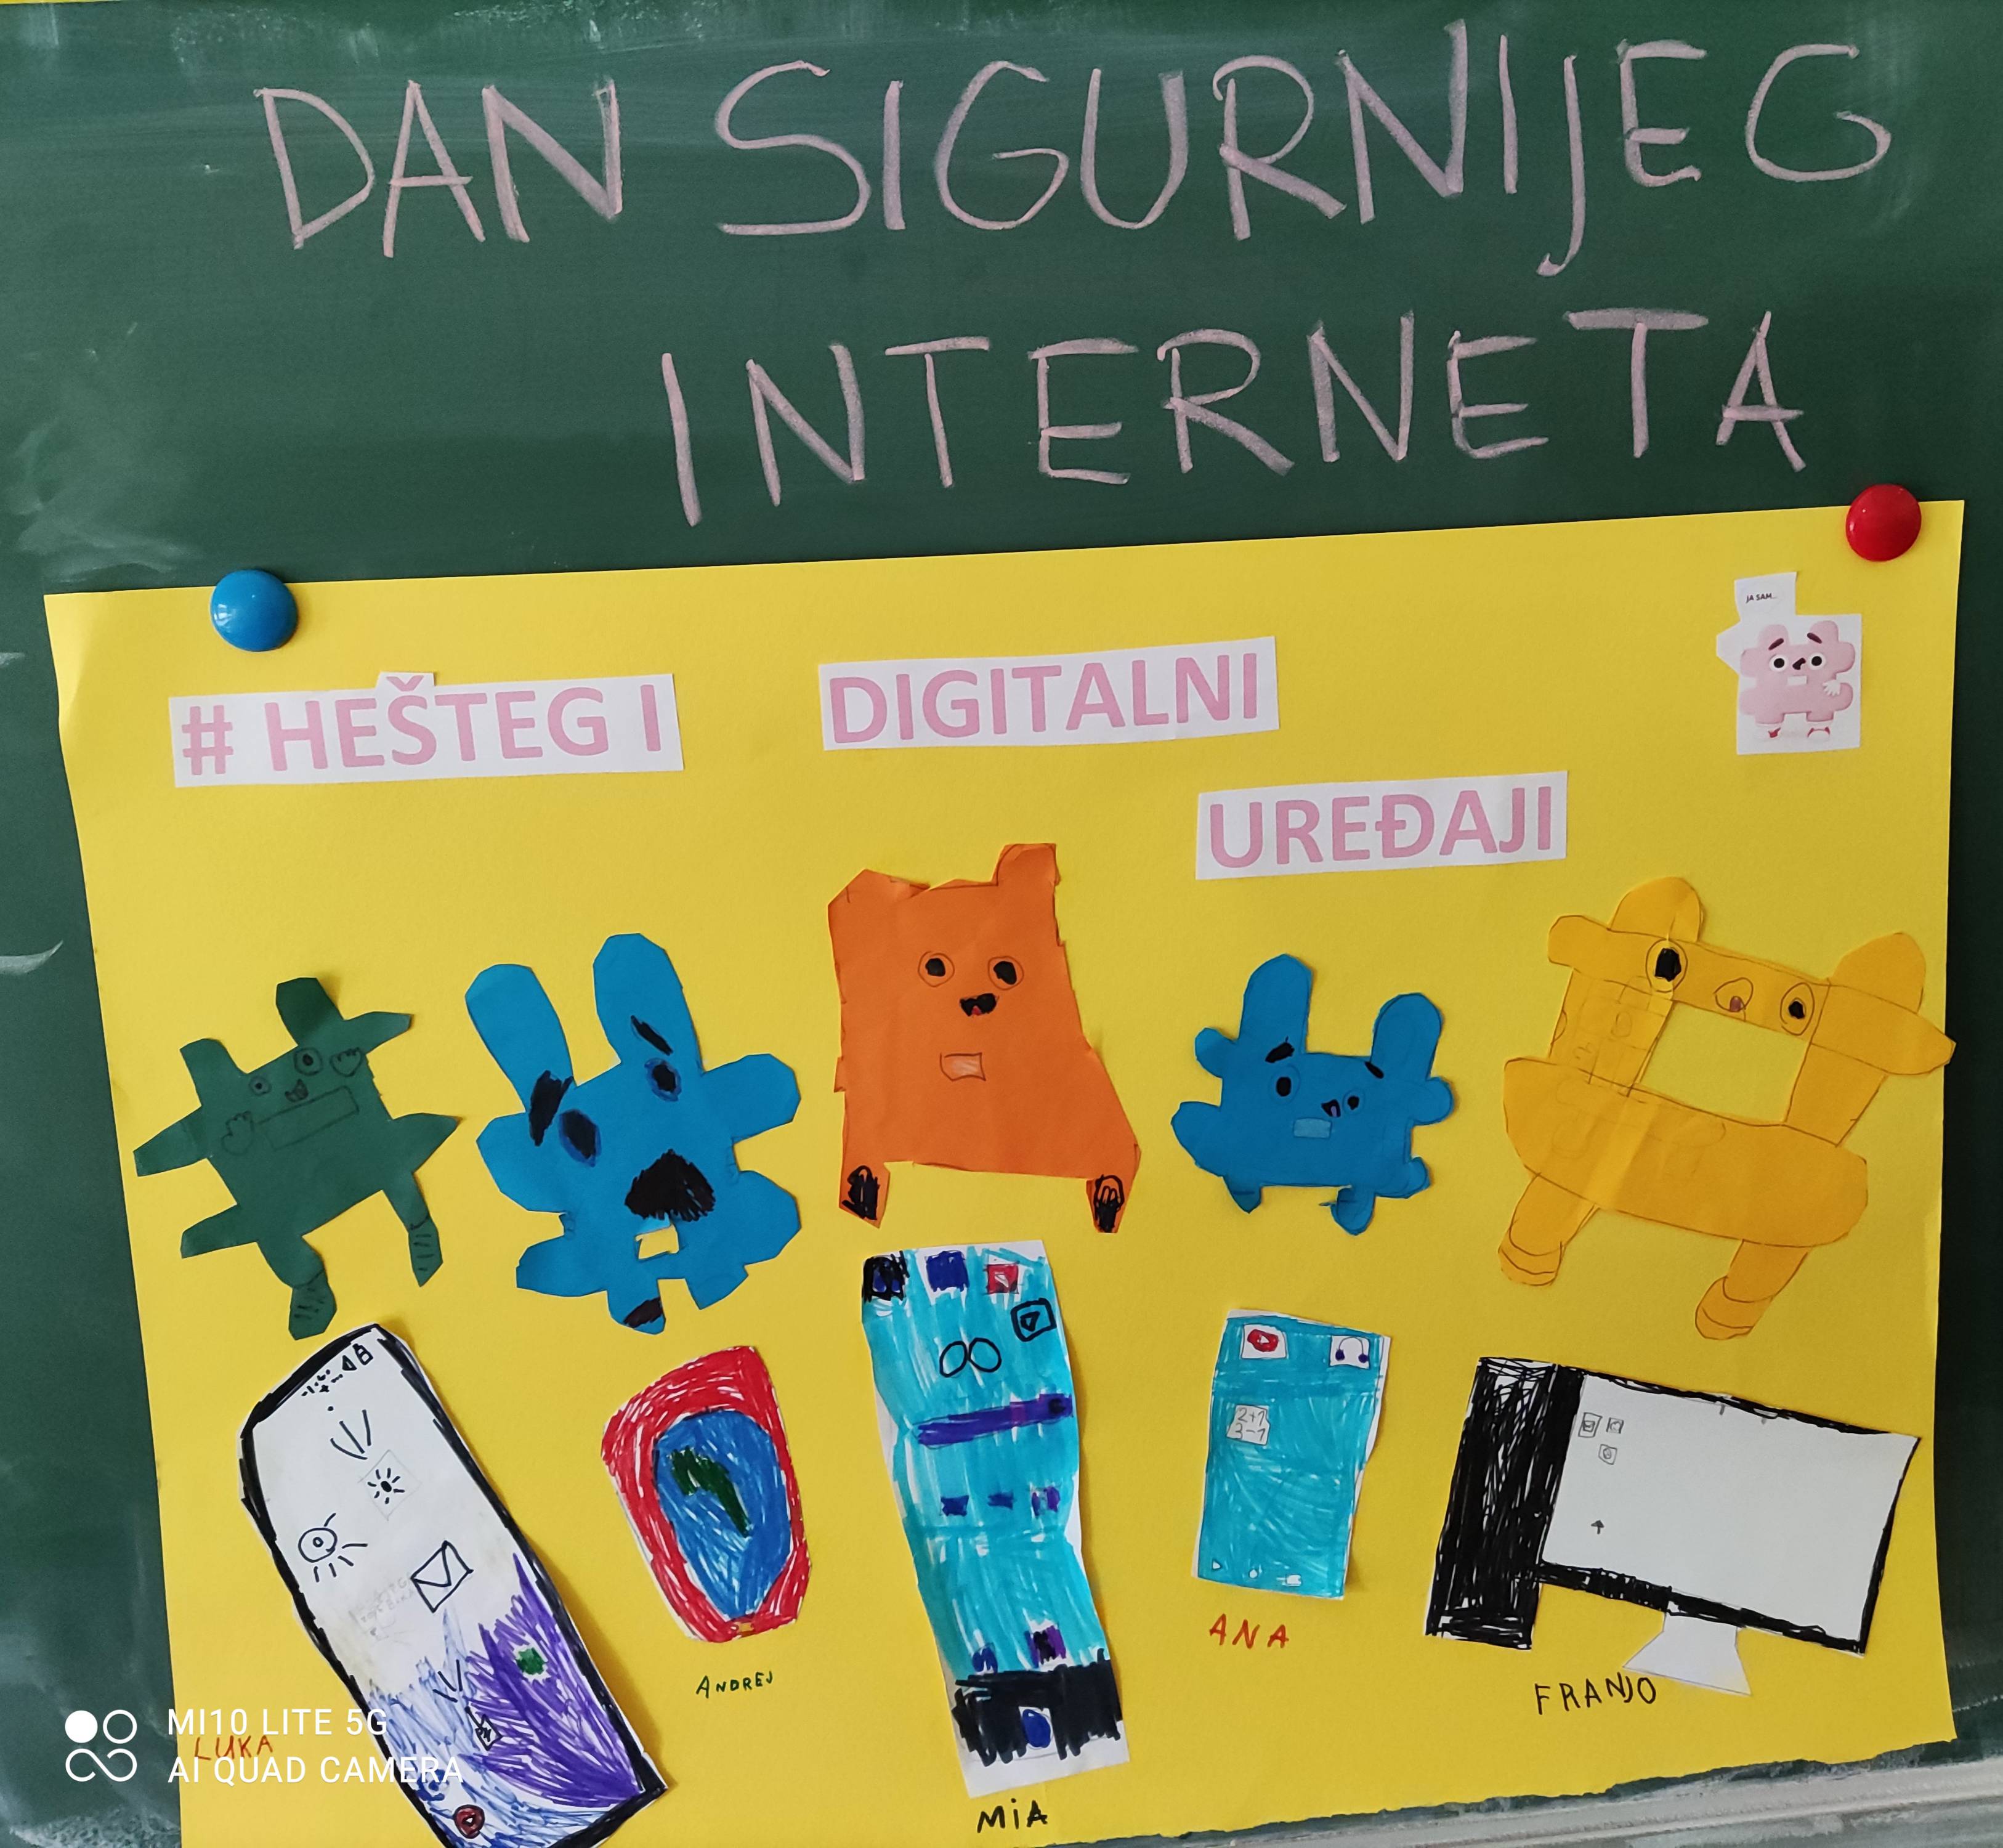 DAN SIGURNIJEG
INTERNETA
JA SAM...
# HEŠTEG I DIGITALNI
UREĐAJI
2+1
3-1
ANA
ANDREJ
FRANJO
LUKA
MIA
MI10 LITE 5G
AI QUAD CAMERA